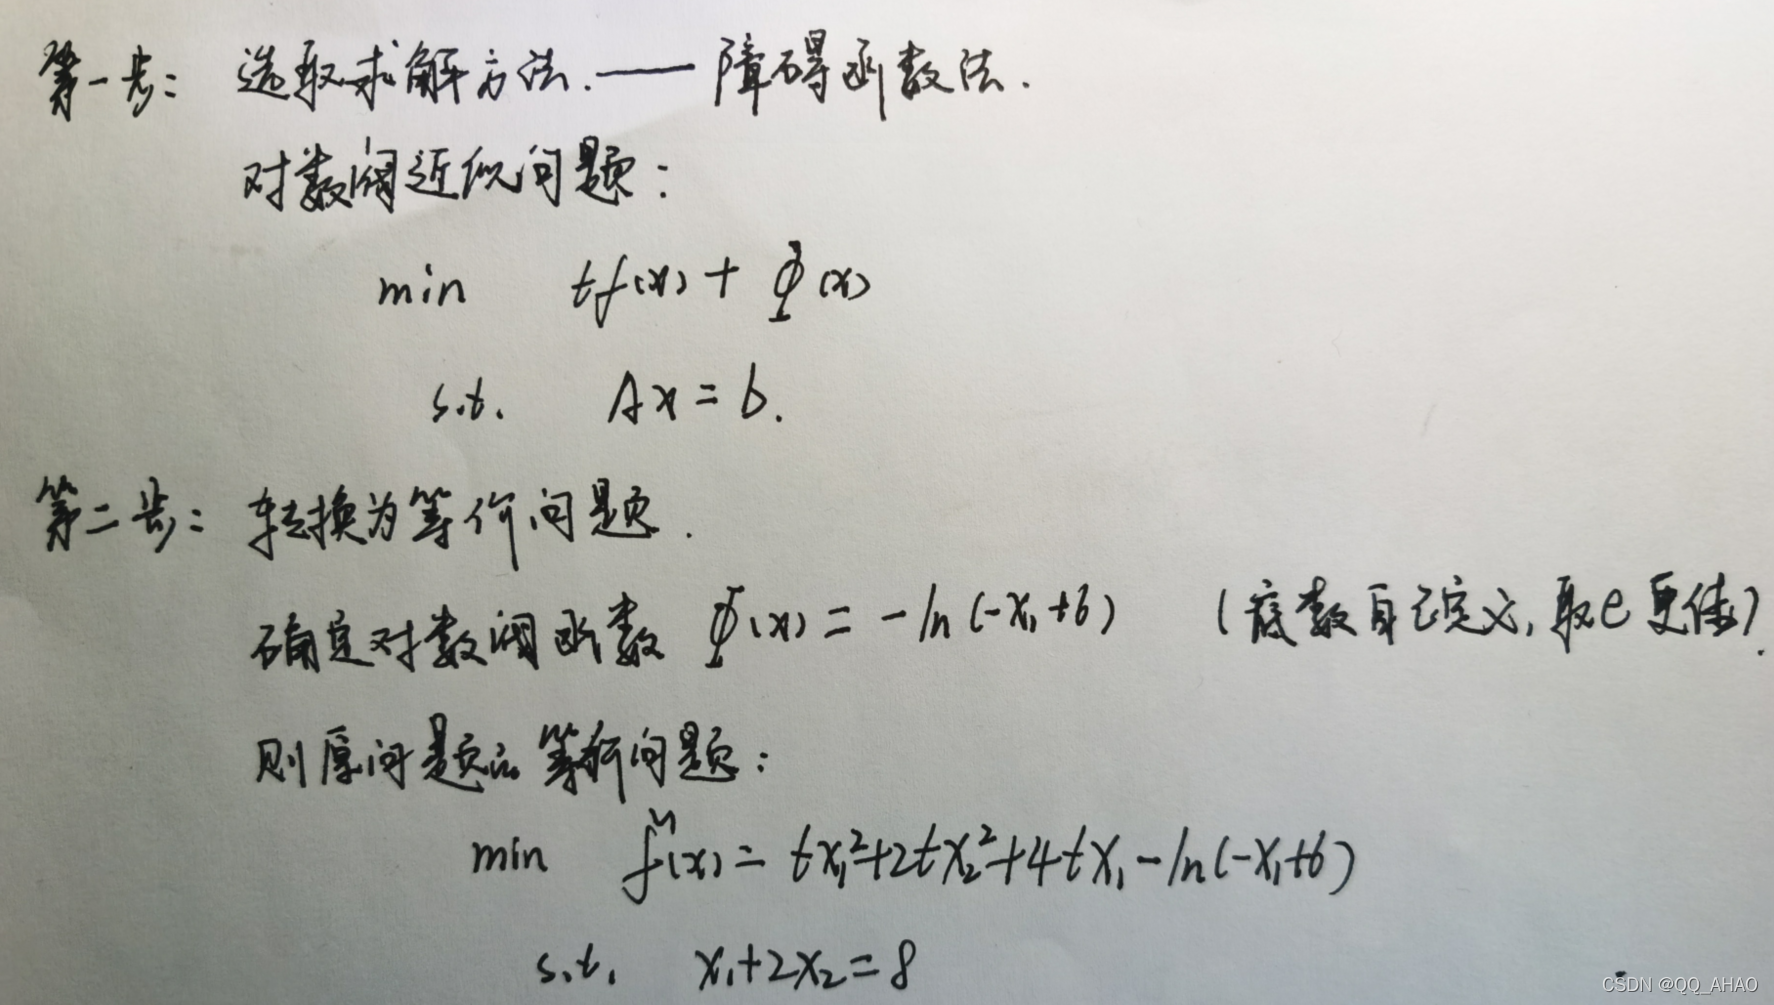 第一步: 选取求解方法. —— 障碍函数法.
对数阀近似问题:
min tf(x) + Φ(x)
s.t. Ax = b.
第二步: 转换为等价问题.
确定对数阀函数 Φ(x) = -ln(-x₁+6) (底数自己定义, 取e更佳).
则原问题的等价问题:
min f̃(x) = tx₁²+2tx₂²+4tx₁-ln(-x₁+6)
s.t. x₁+2x₂=8
CSDN @QQ_AHAO